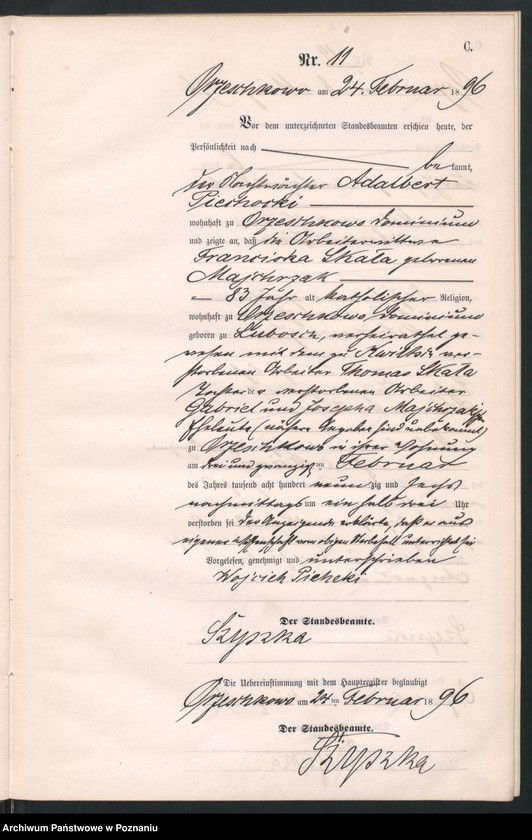 C.
Nr. 11
Orzeschkowo am 24. Februar 1896
Vor dem unterzeichneten Standesbeamten erschien heute, der
Persönlichkeit nach bekannt,
der Nachtwächter Adalbert
Piechocki
wohnhaft zu Orzeschkowo Dominium
und zeigte an, daß die Arbeiterwittwe
Franciska Skała geborenen
Majchrzak
83 Jahr alt katholischer Religion,
wohnhaft zu Orzeschkowo Dominium
geboren zu Lubosch, verheirathet ge-
wesen mit dem zu Kwiltsch ver-
storbenen Arbeiter Thomas Skała
Tochter der verstorbenen Arbeiter
Gabriel und Josepha Majchrzak
Eheleute (nähere Angaben sind unbekannt)
zu Orzeschkowo in ihrer Wohnung
am drei und zwanzigsten Februar
des Jahres tausend acht hundert neunzig und sechs
nachmittags um ein halb drei Uhr
verstorben sei. Der Anzeigende erklärte, daß er aus
eigener Wissenschaft vom obigen Sterbefall unterrichtet sei
Vorgelesen, genehmigt und unterschrieben
Wojciech
Der Standesbeamte.
Szyszka
Die Uebereinstimmung mit dem Hauptregister beglaubigt
Orzeschkowo am 24ten Februar 1896
Der Standesbeamte.
Szyszka
Archiwum Państwowe w Poznaniu